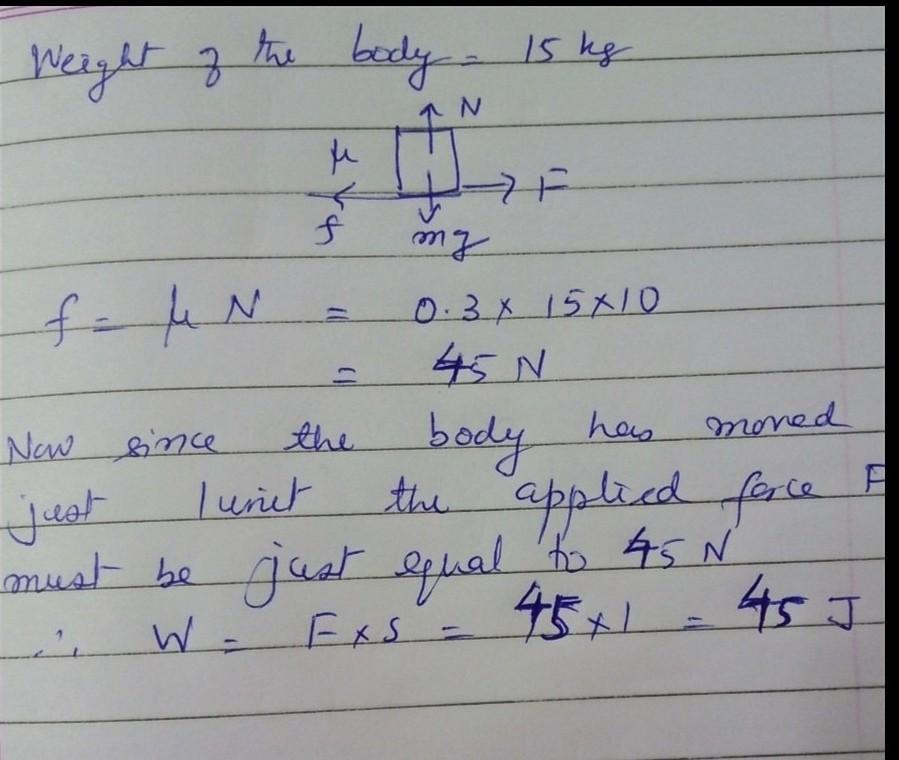 Weight of the body = 15 kg
N
μ
F
f
mg
f = μ N = 0.3 x 15x10
= 45 N
Now since the body has moved
just 1 unit the applied force F
must be just equal to 45 N
∴ W = F x s = 45 x 1 = 45 J